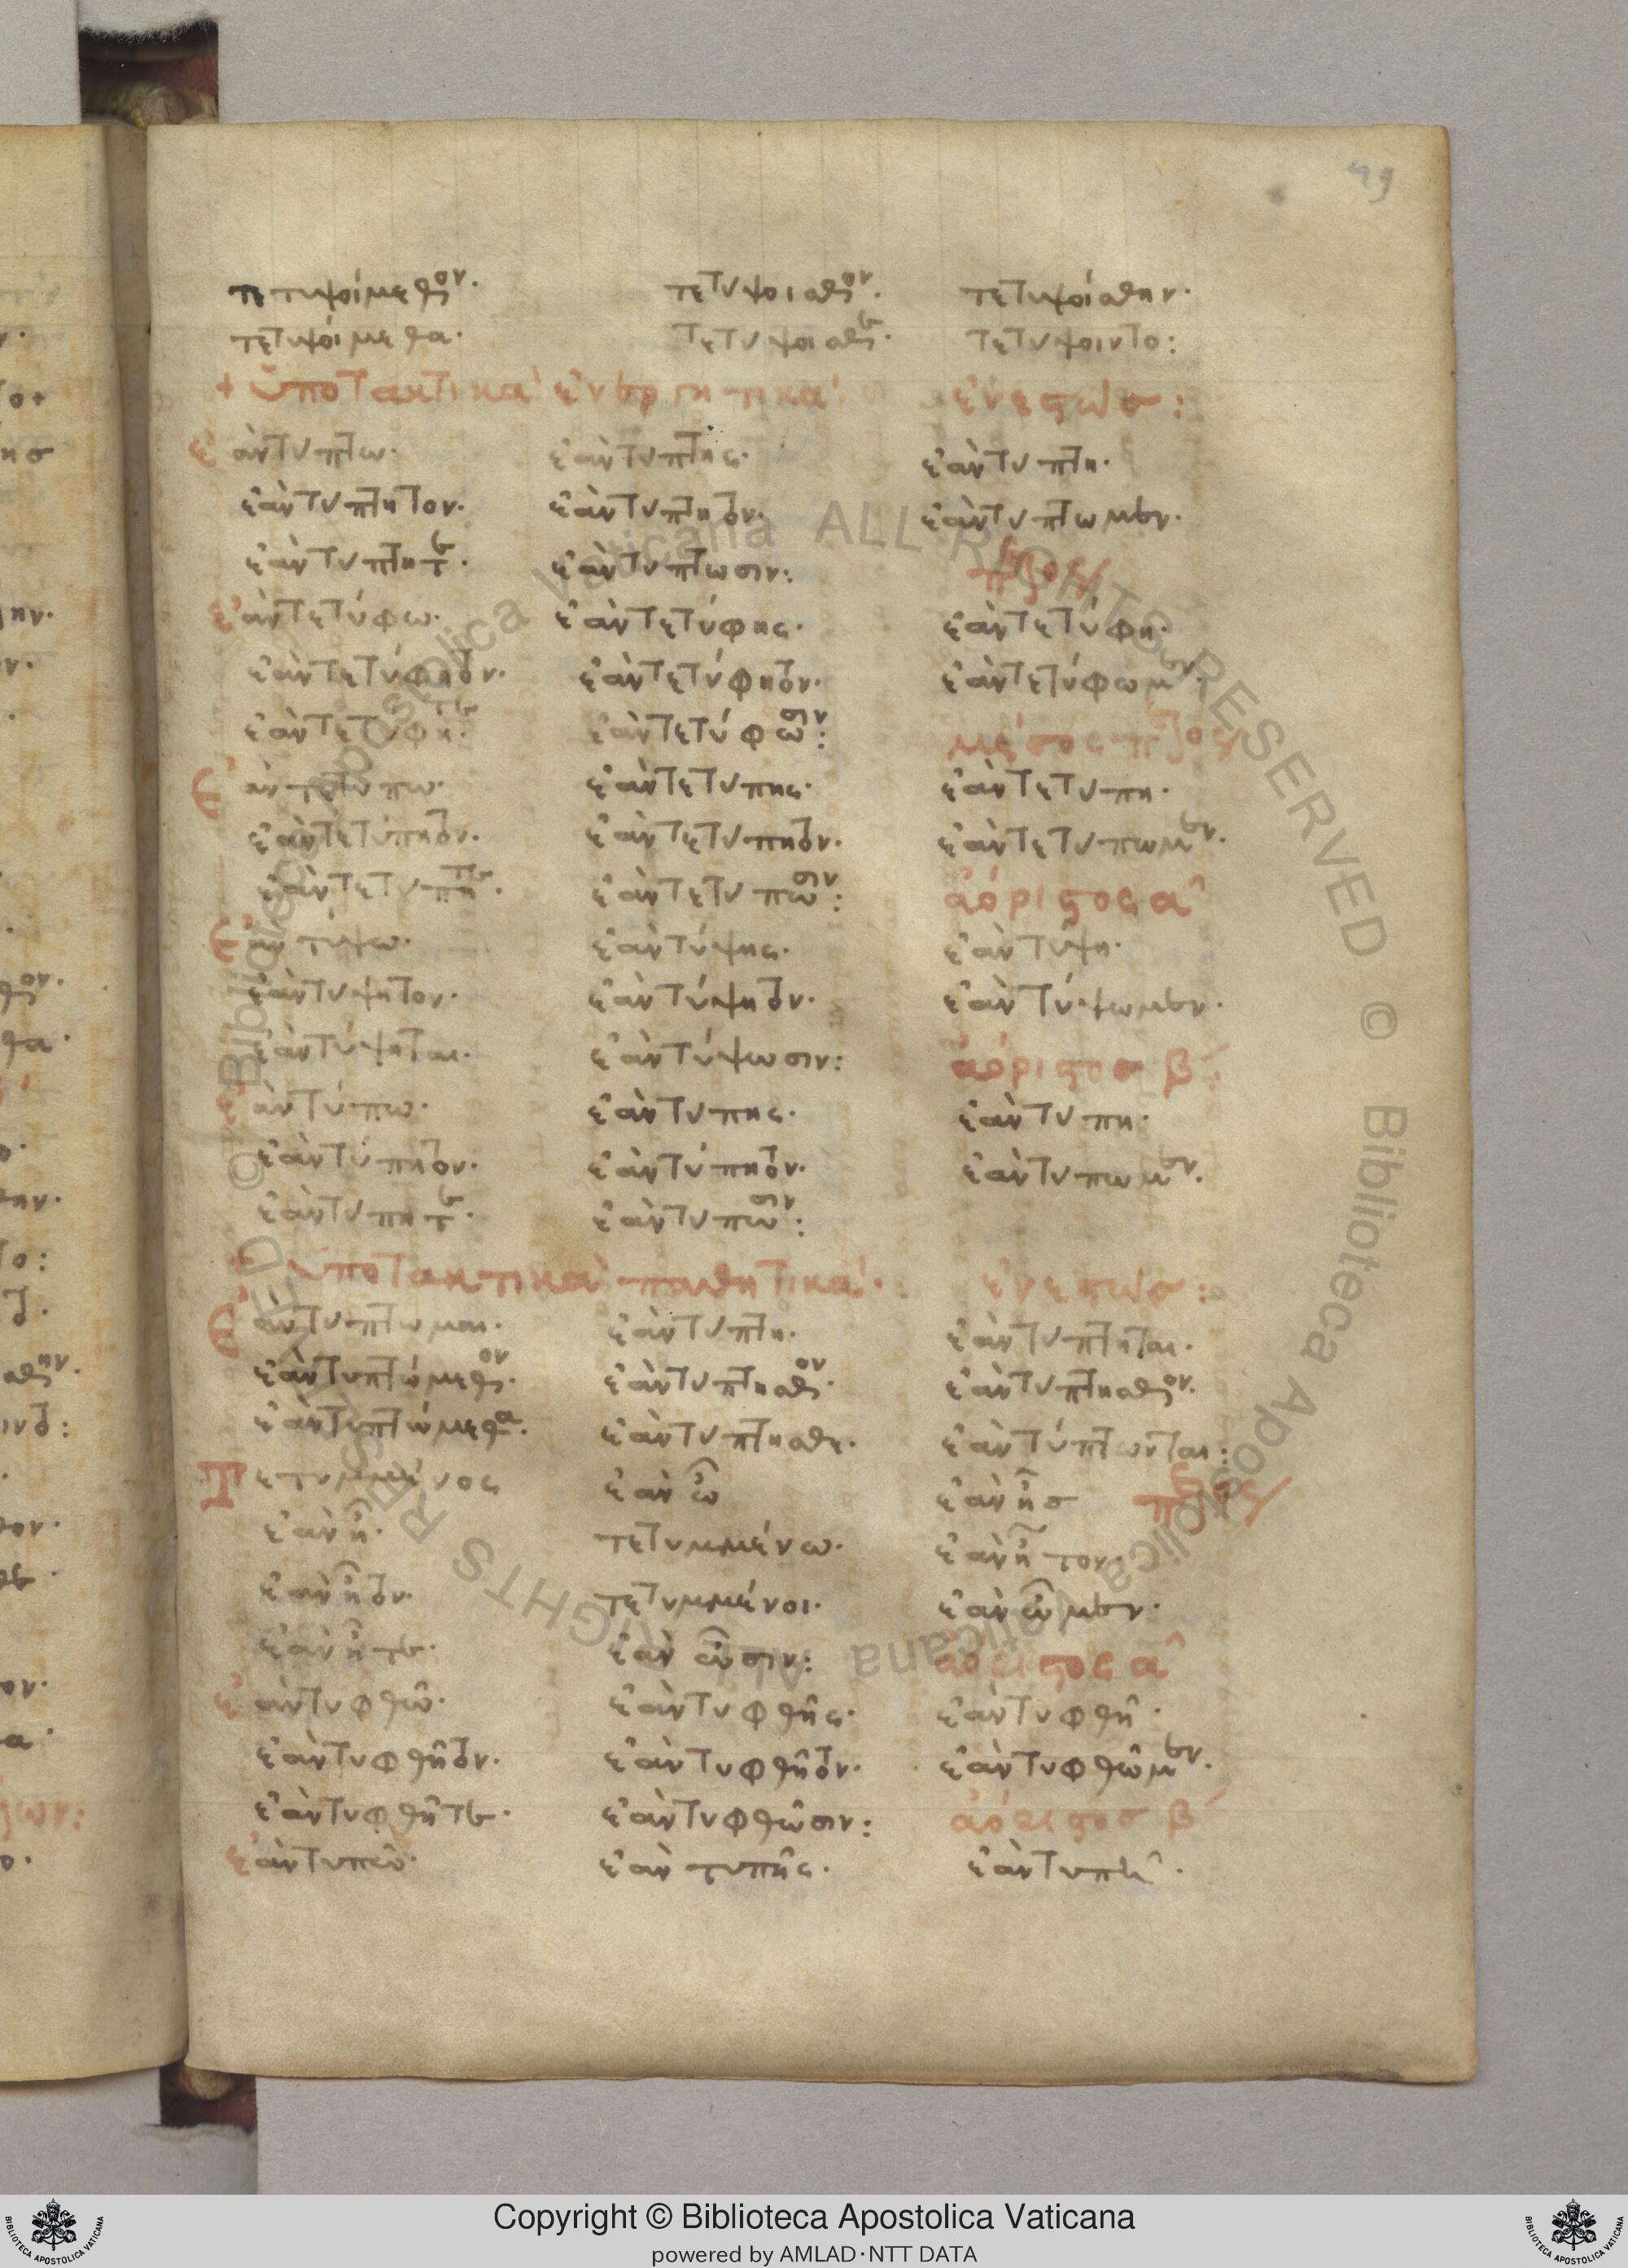 49
τετυψοίμεθον· τετυψοισθον· τετυψοίσθην·
τετυψοίμεθα· τετυψοισθε· τετυψοιντο:
+ ὑποτακτικὰ ἐνεργητικά· ἐνεστώσ:
ἐὰν τυπτω· ἐὰν τυπτης· ἐὰν τυπτη·
ἐὰν τυπτητον· ἐὰν τυπτητον· ἐὰν τυπτωμεν·
ἐὰν τυπτητε· ἐὰν τυπτωσιν:
ἐὰν τετύφω· ἐὰν τετύφης· ἐὰν τετύφη·
ἐὰν τετύφητον· ἐὰν τετύφητον· ἐὰν τετύφωμεν·
ἐὰν τετυφητε· ἐὰν τετύφωσιν: μέσος
ἐὰν τετυπω· ἐὰν τετυπης· ἐὰν τετυπη·
ἐὰν τετύπητον· ἐὰν τετυπητον· ἐὰν τετυπωμεν·
ἐὰν τετυπητε· ἐὰν τετυπωσιν: ἀόριστος α
ἐὰν τυψω· ἐὰν τύψης· ἐὰν τύψη·
ἐὰν τυψητον· ἐὰν τύψητον· ἐὰν τύψωμεν·
ἐὰν τύψηται· ἐὰν τύψωσιν: ἀόριστοσ β:
ἐὰν τύπω· ἐὰν τυπης· ἐὰν τυπη·
ἐὰν τύπητον· ἐὰν τύπητον· ἐὰν τυπωμεν·
ἐὰν τυπητε· ἐὰν τυπωσιν:
+ ὑποτακτικὰ παθητικά· ἐνεστώσ:
ἐὰν τυπτωμαι· ἐὰν τυπτη· ἐὰν τυπτηται·
ἐὰν τυπτώμεθον· ἐὰν τυπτησθον· ἐὰν τυπτησθον·
ἐὰν τυπτώμεθα· ἐὰν τυπτησθε· ἐὰν τύπτωνται:
Τετυμμένος ἐὰν ὦ ἐὰν ἦσ
ἐὰν ἦ· τετυμμένω· ἐὰν ἦτον·
ἐὰν ἦτον· τετυμμένοι· ἐὰν ὦμεν·
ἐὰν ἦτε· ἐὰν ὦσιν: ἀόριστος α
ἐὰν τυφθῶ· ἐὰν τυφθῆς· ἐὰν τυφθῆ·
ἐὰν τυφθῆτον· ἐὰν τυφθῆτον· ἐὰν τυφθῶμεν·
ἐὰν τυφθῆτε· ἐὰν τυφθῶσιν: ἀόριστοσ β
ἐὰν τυπῶ· ἐὰν τυπῆς· ἐὰν τυπῆ·
© Biblioteca Apostolica Vaticana ALL RIGHTS RESERVED © Biblioteca Apostolica Vaticana ALL RIGHTS RESERVED
BIBLIOTECA APOSTOLICA VATICANA
Copyright © Biblioteca Apostolica Vaticana
powered by AMLAD·NTT DATA
BIBLIOTECA APOSTOLICA VATICANA